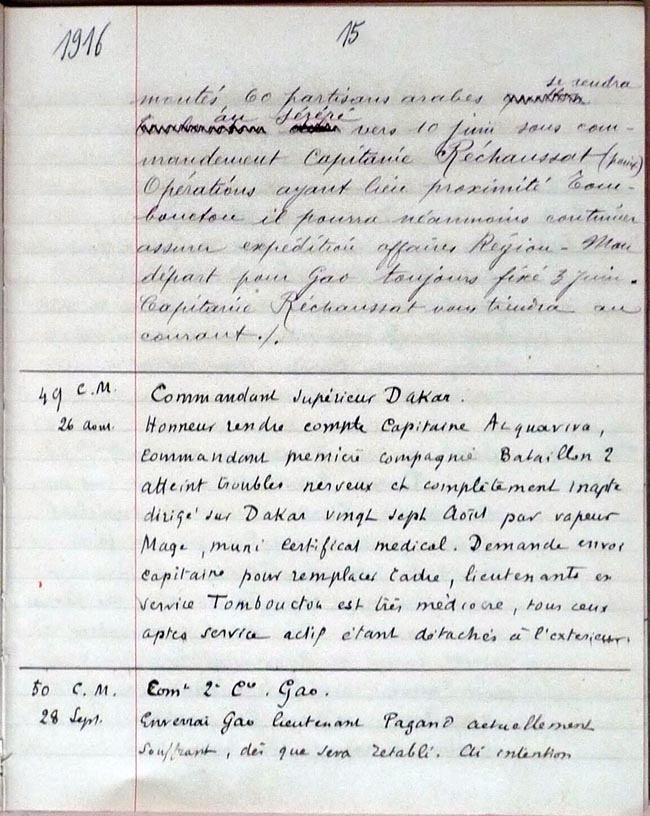 1916
15
montés 60 partisans arabes se rendra
au Séréré vers 10 juin sous com-
mandement Capitaine Réchaussat
Opérations ayant lieu proximité Tom-
bouctou il pourra néanmoins continuer
assurer expédition affaires Région - Mon
départ pour Gao toujours fixé 3 Juin.
Capitaine Réchaussat vous tiendra au
courant ./.
49 C.M. Commandant supérieur Dakar.
26 aout. Honneur rendre compte Capitaine Acquaviva,
Commandant première compagnie Bataillon 2
atteint troubles nerveux et complètement inapte
dirigé sur Dakar vingt sept Août par vapeur
Mage, muni certificat médical. Demande envoi
capitaine pour remplacer cadre, lieutenants en
service Tombouctou est très médiocre, tous ceux
aptes service actif étant détachés à l'extérieur.
50 C.M. Comt 2e Cie. Gao.
28 Sept. Enverrai Gao lieutenant Pagand actuellement
souffrant, dès que sera rétabli. Ai intention